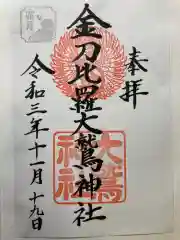 奉拝
金刀比羅大鷲神社
大鷲
神社
令和三年十一月十九日